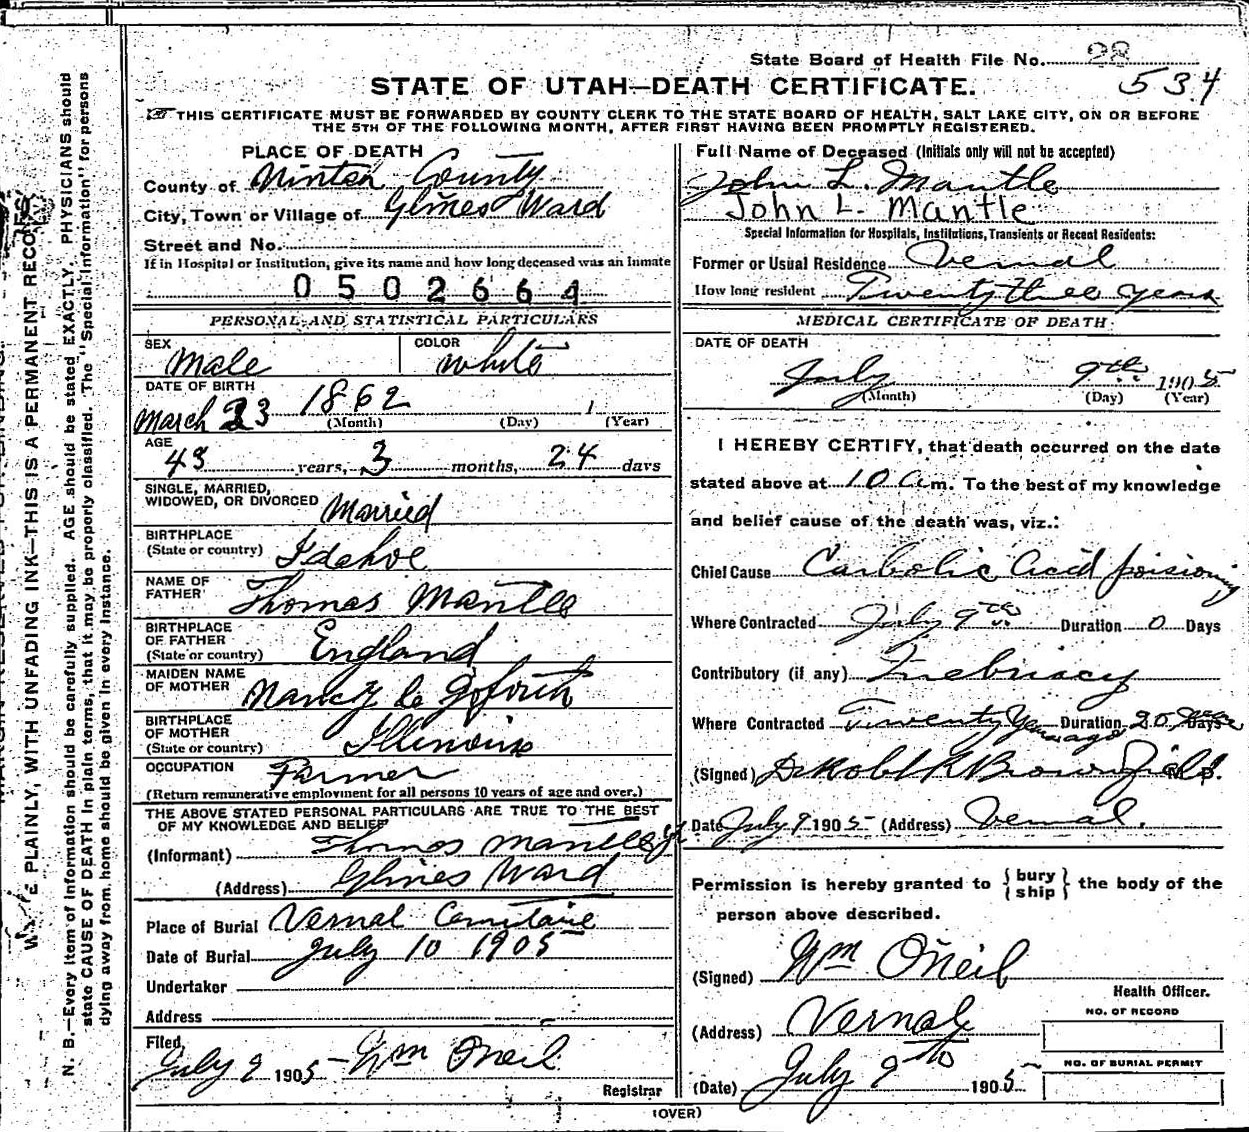 State Board of Health File No. 28
534
STATE OF UTAH—DEATH CERTIFICATE.
THIS CERTIFICATE MUST BE FORWARDED BY COUNTY CLERK TO THE STATE BOARD OF HEALTH, SALT LAKE CITY, ON OR BEFORE
THE 5TH OF THE FOLLOWING MONTH, AFTER FIRST HAVING BEEN PROMPTLY REGISTERED.
PLACE OF DEATH
County of Uintah County
City, Town or Village of Glines Ward
Street and No.
If in Hospital or Institution, give its name and how long deceased was an inmate
0502664
PERSONAL AND STATISTICAL PARTICULARS
SEX Male
COLOR White
DATE OF BIRTH
March 23 1862
(Month) (Day) (Year)
AGE
43 years, 3 months, 24 days
SINGLE, MARRIED,
WIDOWED, OR DIVORCED Married
BIRTHPLACE
(State or country) Idahoe
NAME OF
FATHER Thomas Mantle
BIRTHPLACE
OF FATHER
(State or country) England
MAIDEN NAME
OF MOTHER Nancy le Goforth
BIRTHPLACE
OF MOTHER
(State or country) Illinois
OCCUPATION Farmer
(Return remunerative employment for all persons 10 years of age and over.)
THE ABOVE STATED PERSONAL PARTICULARS ARE TRUE TO THE BEST
OF MY KNOWLEDGE AND BELIEF
(Informant) Thomas Mantle Jr
(Address) Glines Ward
Place of Burial Vernal
Date of Burial July 10 1905
Undertaker
Address
Filed,
July 9 1905 Wm O'Neil
Registrar
Full Name of Deceased (Initials only will not be accepted)
John L. Mantle
John L. Mantle
Special Information for Hospitals, Institutions, Transients or Recent Residents:
Former or Usual Residence Vernal
How long resident Twenty three years
MEDICAL CERTIFICATE OF DEATH
DATE OF DEATH
July 9th 1905
(Month) (Day) (Year)
I HEREBY CERTIFY, that death occurred on the date
stated above at 10 a m. To the best of my knowledge
and belief cause of the death was, viz.:
Chief Cause Carbolic Acid poisioning
Where Contracted July 9th Duration 0 Days
Contributory (if any) Inebriacy
Where Contracted Twenty Years ago Duration 20 Days
(Signed) Brownfield M. D.
Date July 9 1905 (Address) Vernal.
Permission is hereby granted to { bury
ship } the body of the
person above described.
(Signed) Wm O'Neil
Health Officer.
(Address) Vernal
NO. OF RECORD
NO. OF BURIAL PERMIT
(Date) July 9th 1905
(OVER)
PLAINLY, WITH UNFADING INK—THIS IS A PERMANENT RECORD
N. B.—Every item of information should be carefully supplied. AGE should be stated EXACTLY. PHYSICIANS should
state CAUSE OF DEATH in plain terms, that it may be properly classified. The "Special Information" for persons
dying away from home should be given in every instance.